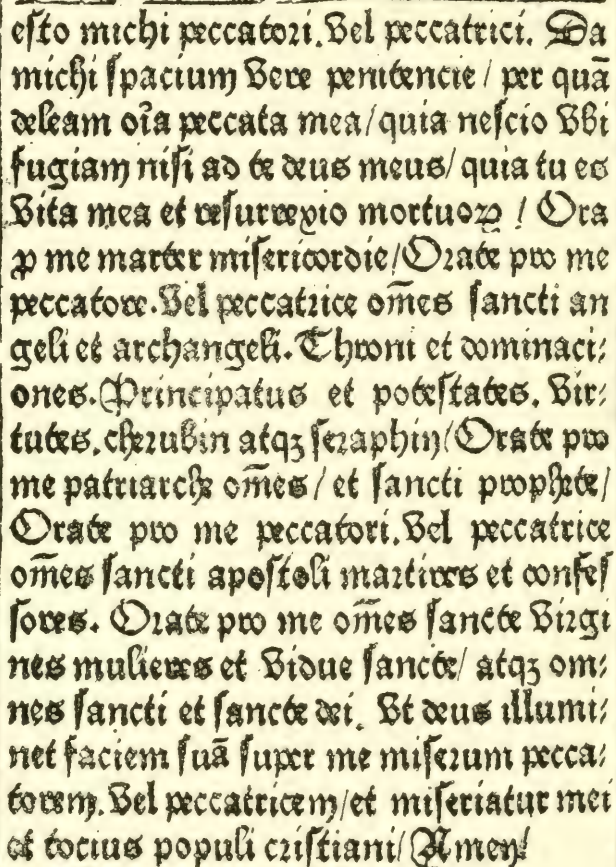 eſto michi peccatori. Vel peccatrici. Da
michi ſpacium vere penitencie / per quā
deleam oīa peccata mea/quia neſcio vbi
fugiam niſi ad te deus meus/ quia tu es
vita mea et reſurrexio mortuoꝝ / Ora
ꝓ me marter miſericordie/Orate pro me
peccatore. Vel peccatrice om̄es ſancti an
geli et archangeli. Throni et dominaci⸗
ones. Principatus et poteſtates. Vir⸗
tutes. cherubin atqꝫ ſeraphin/Orate pro
me patriarche om̄es / et ſancti prophete/
Orate pro me peccatori. Vel peccatrice
om̄es ſancti apoſtoli martires et confeſ
ſores. Orate pro me om̄es ſancte virgi
nes mulieres et vidue ſancte/ atqꝫ om⸗
nes ſancti et ſancte dei. Vt deus illumi⸗
net faciem ſuā ſuper me miſerum pecca⸗
torem. Vel peccatricem/et miſeriatur mei
et tocius populi criſtiani/ Amen/